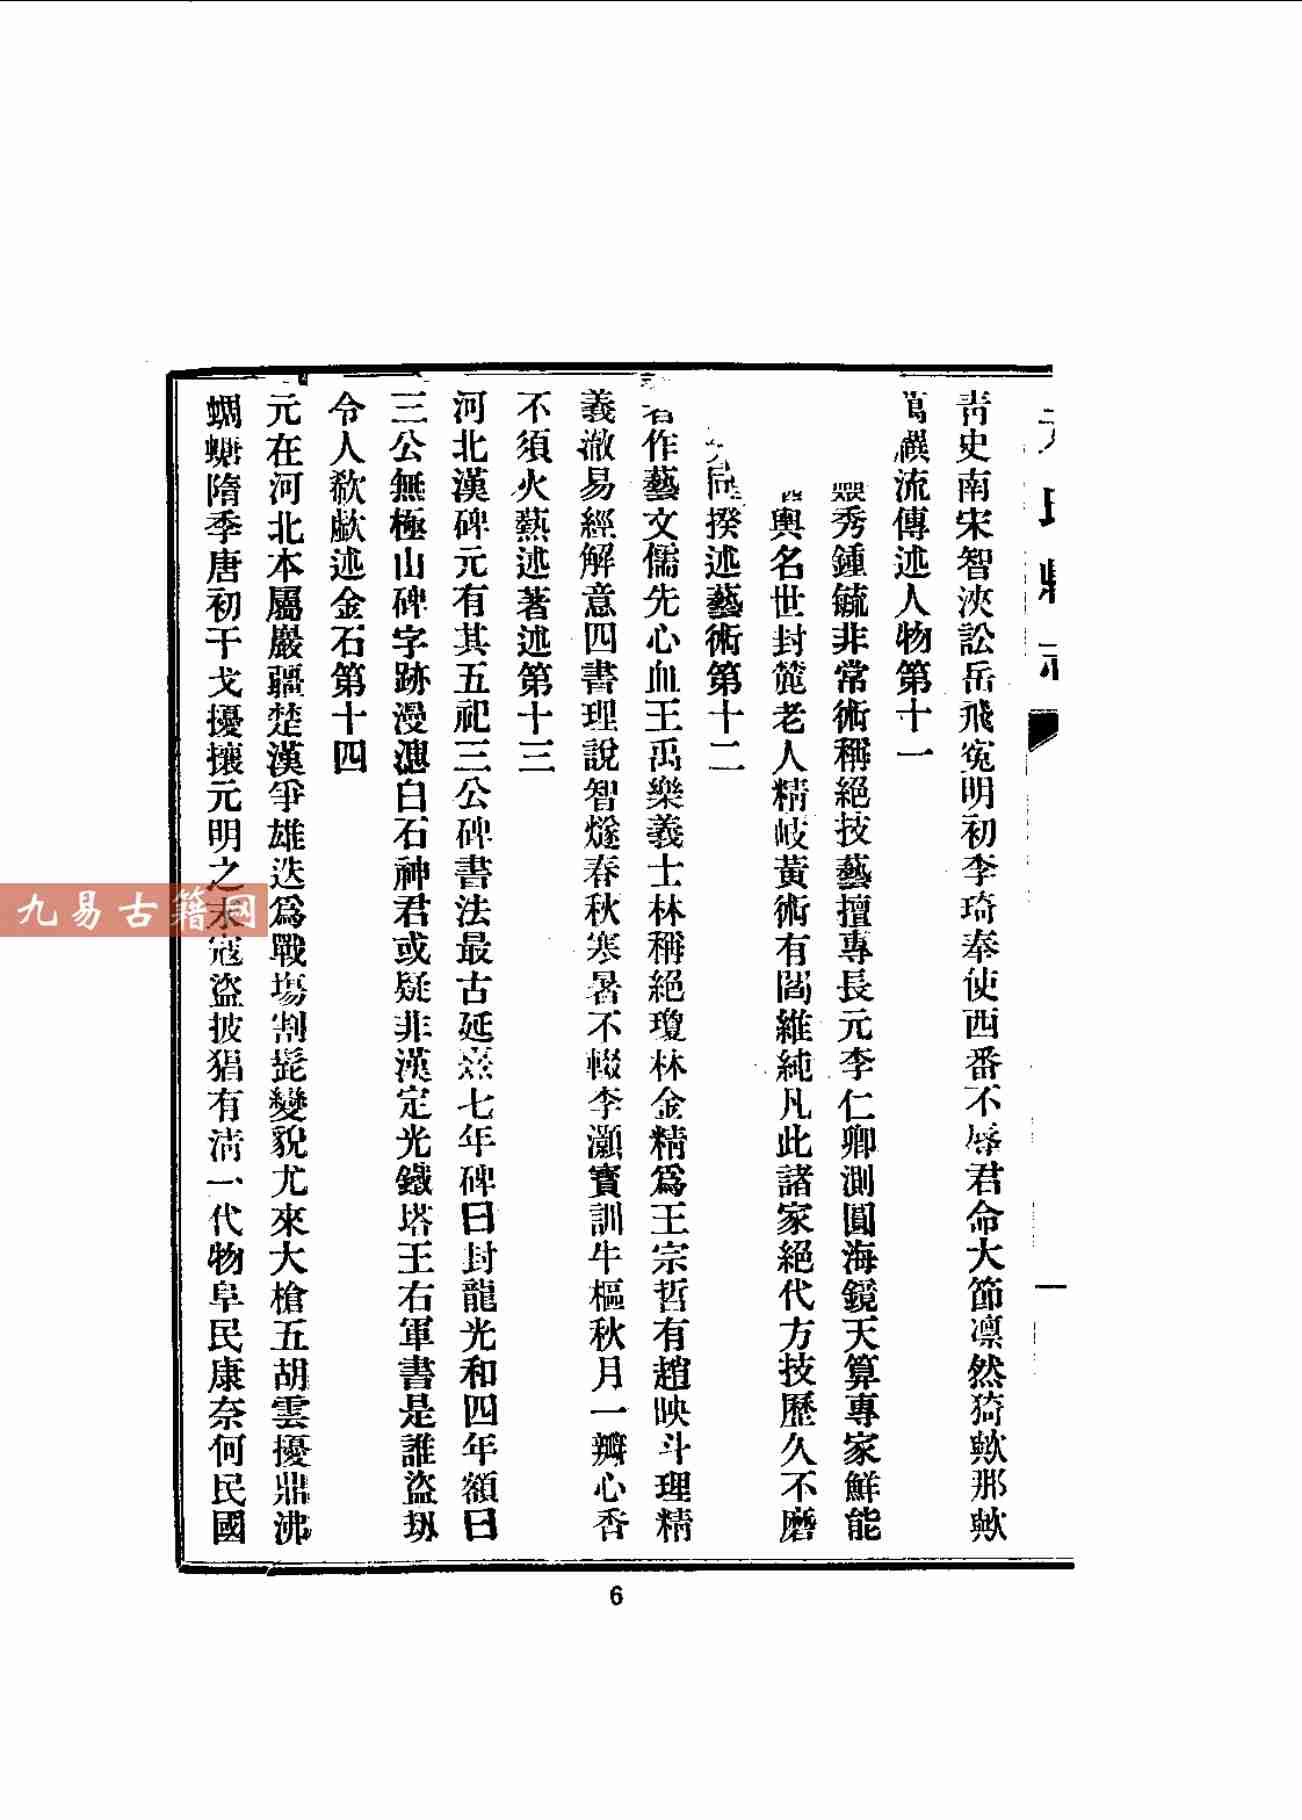 元氏縣志
一
青史南宋智浹訟岳飛冤明初李琦奉使西番不辱君命大節凛然猗歟那歟
萬禩流傳述人物第十一
秀鍾毓非常術稱絕技藝擅專長元李仁卿測圓海鏡天算專家鮮能
輿名世封麓老人精岐黃術有閻維純凡此諸家絕代方技歷久不磨
同揆述藝術第十二
著作藝文儒先心血王禹樂義士林稱絕瓊林金精為王宗哲有趙映斗理精
義澈易經解意四書理說智燧春秋寒暑不輟李灝寶訓牛樞秋月一瓣心香
不須火爇述著述第十三
河北漢碑元有其五祀三公碑書法最古延熹七年碑曰封龍光和四年額曰
三公無極山碑字跡漫漶白石神君或疑非漢定光鐵塔王右軍書是誰盜刼
令人欷歔述金石第十四
元在河北本屬巖疆楚漢爭雄迭為戰塲割髭變貌尤來大槍五胡雲擾鼎沸
蜩螗隋季唐初干戈擾攘元明之末寇盜披猖有清一代物阜民康奈何民國
九易古籍网
6